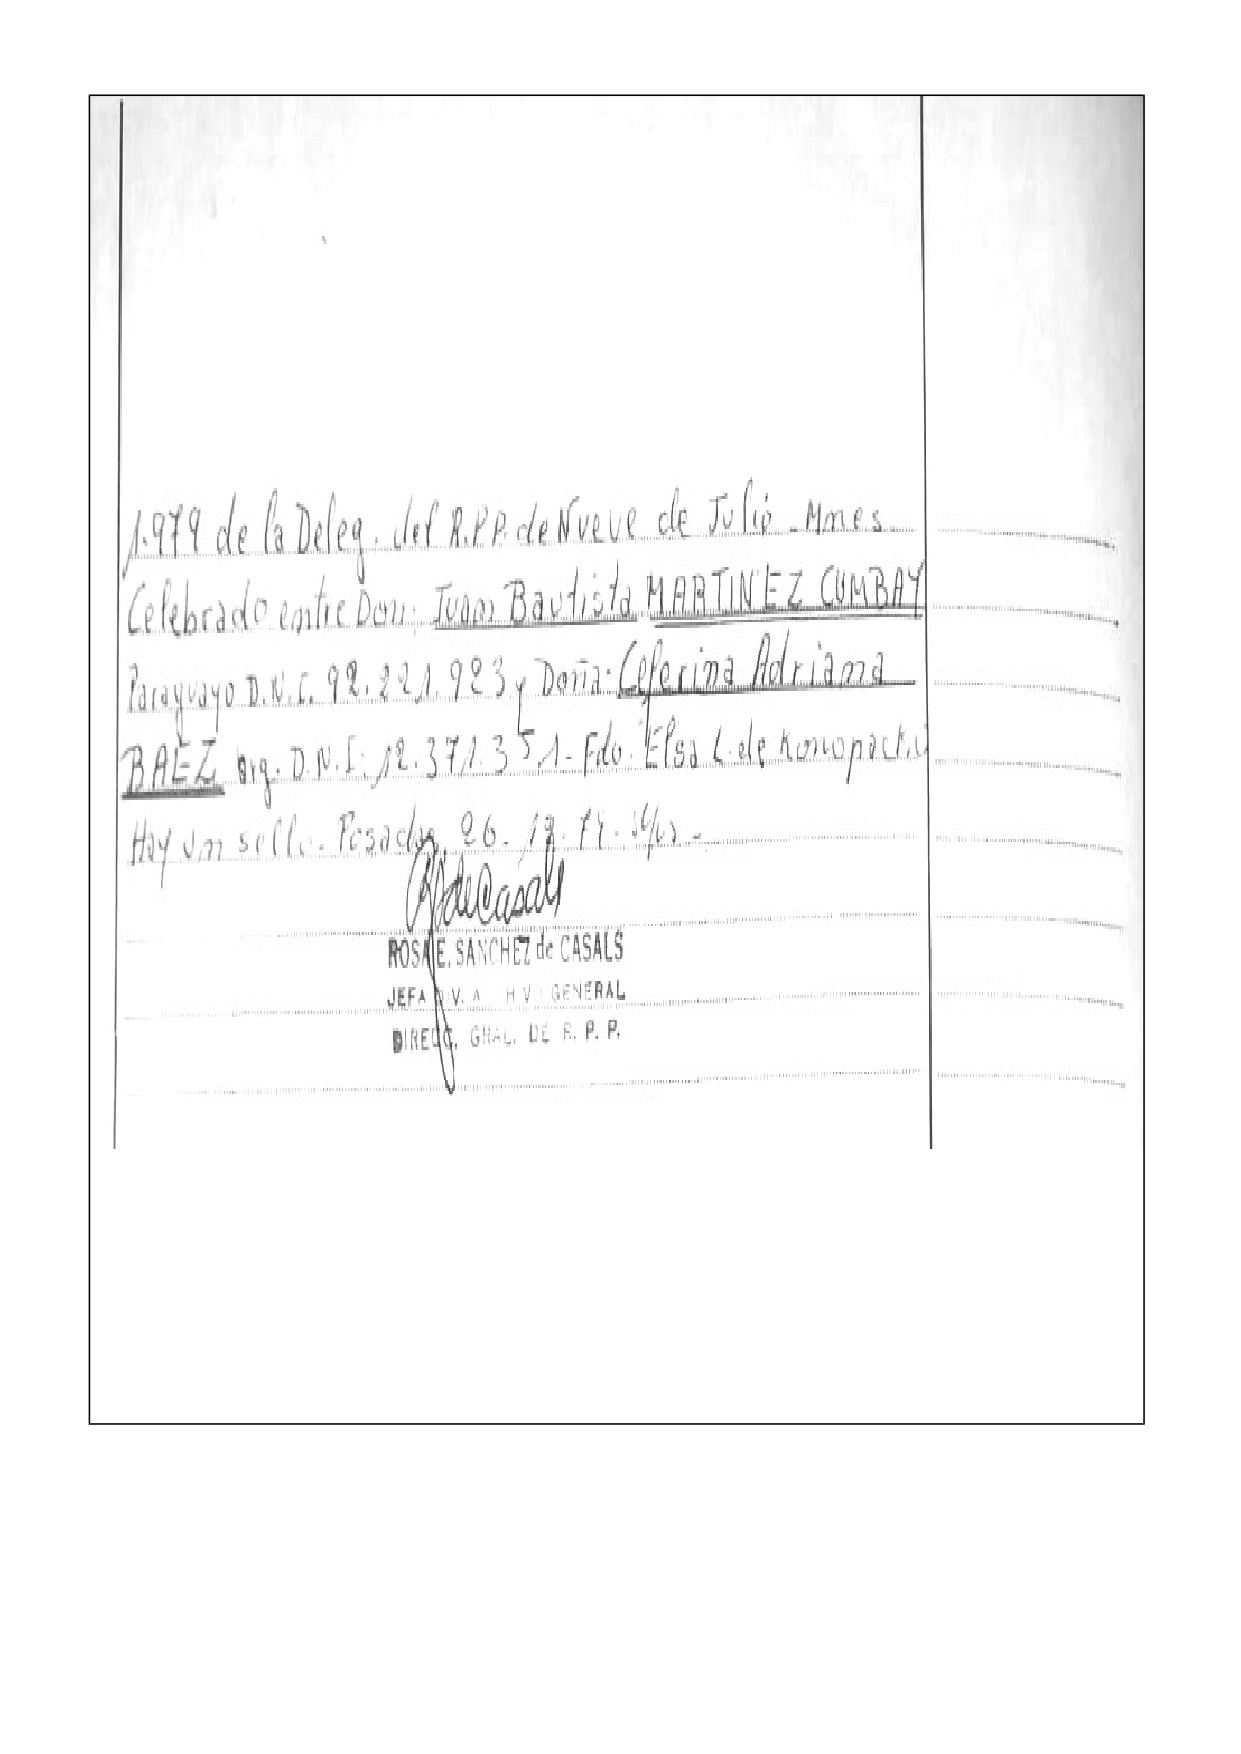 1.979 de la Deleg. del R.P.P. de Nueve de Julio - Mnes
Celebrado entre Don: Juan Bautista MARTINEZ CUMBAY
Paraguayo D.N.I. 92.221.923 y Doña: Ceferina Adriana
BAEZ arg. D.N.I. 12.371.351 - Fdo. Elsa L. de Konopacki
Hay un sello. Posadas, 26.12.79.
R de Casals
ROSA E. SANCHEZ de CASALS
JEFA DIV. GENERAL
DIREC. GRAL. DE R. P. P.